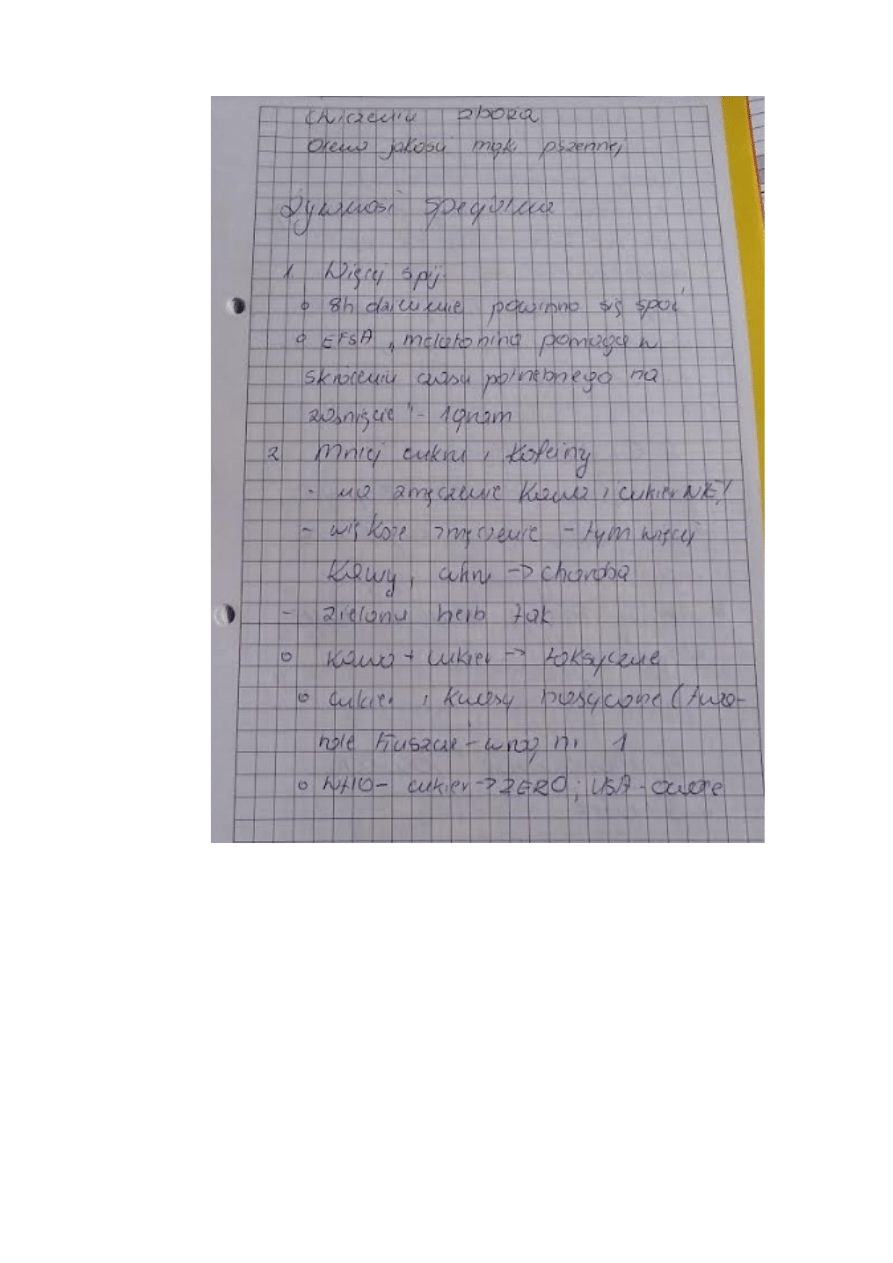 ćwiczeniu zboża
Ocena jakości mąki pszennej
Żywność specjalna
1. Więcej śpij.
8h dziennie powinno się spać
EFSA „melatonina pomaga w
skróceniu czasu potrzebnego na
zaśnięcie" - 1 gram
2 Mniej cukru i kofeiny
- na zmęczenie kawa i cukier NIE!
- większe zmęczenie - tym więcej
kawy, cukru -> choroba
- zielona herb tak
kawa + cukier -> toksyczne
cukier i kwasy nasycone (
tłuszcze - wróg nr 1
WHO - cukier -> ZERO; USA -